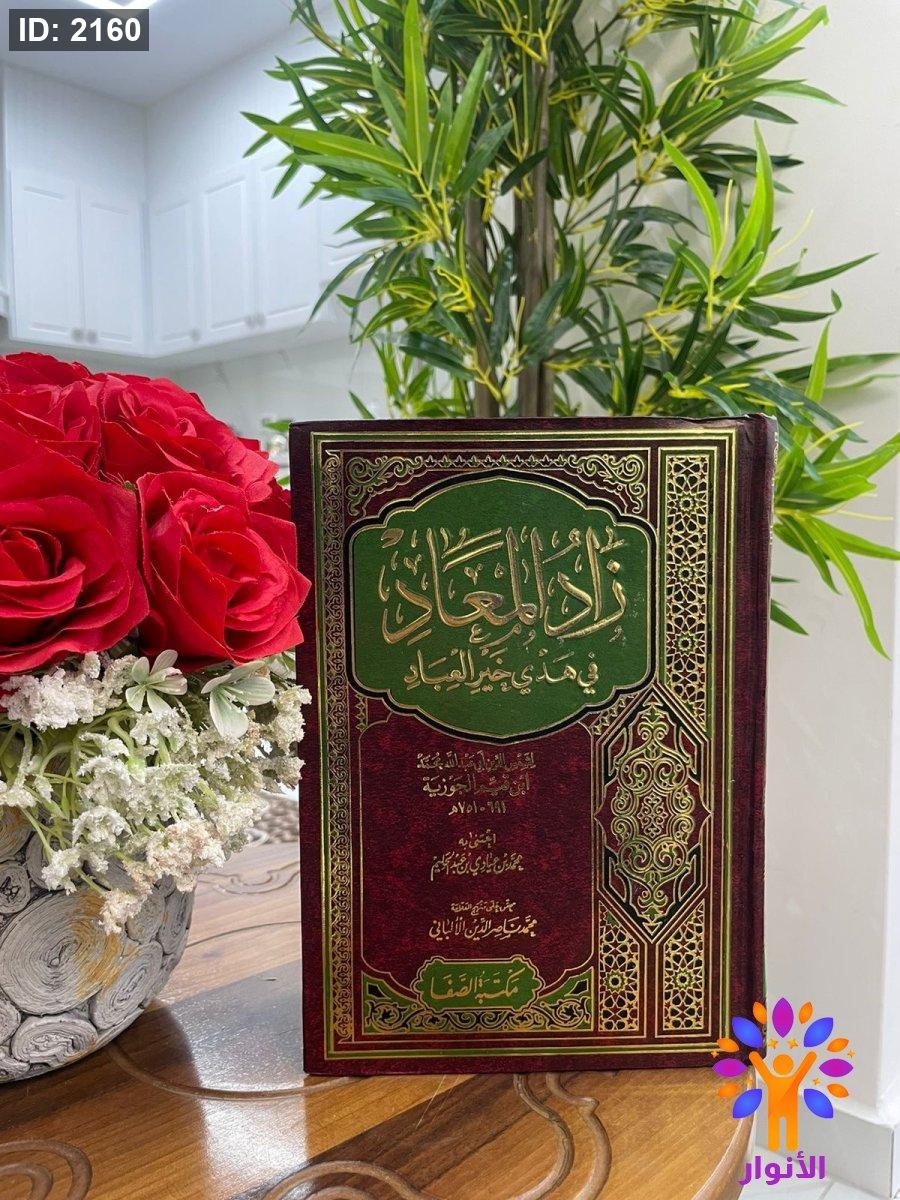 ID: 2160
زَادُ المَعَادِ
في هَدْيِ خَيْرِ العِبَادِ
لشمس الدين أبي عبد الله محمد
ابن قيم الجوزية
٦٩١ - ٧٥١ هـ
اعتنى به
محمد بن عيادي بن عبد الحليم
محمد ناصر الدين الألباني
مكتبة الصفا
الأنوار